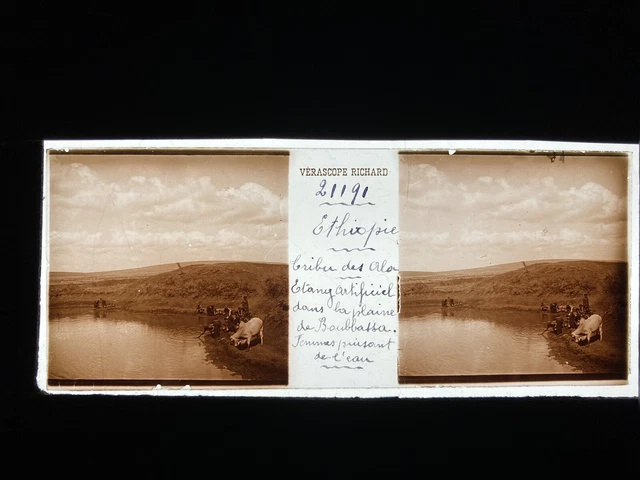 VÉRASCOPE RICHARD
21191
Ethiopie
Tribu des Ala
Etang artificiel
dans la plaine
de Boubbassa.
Femmes puisant
de l'eau